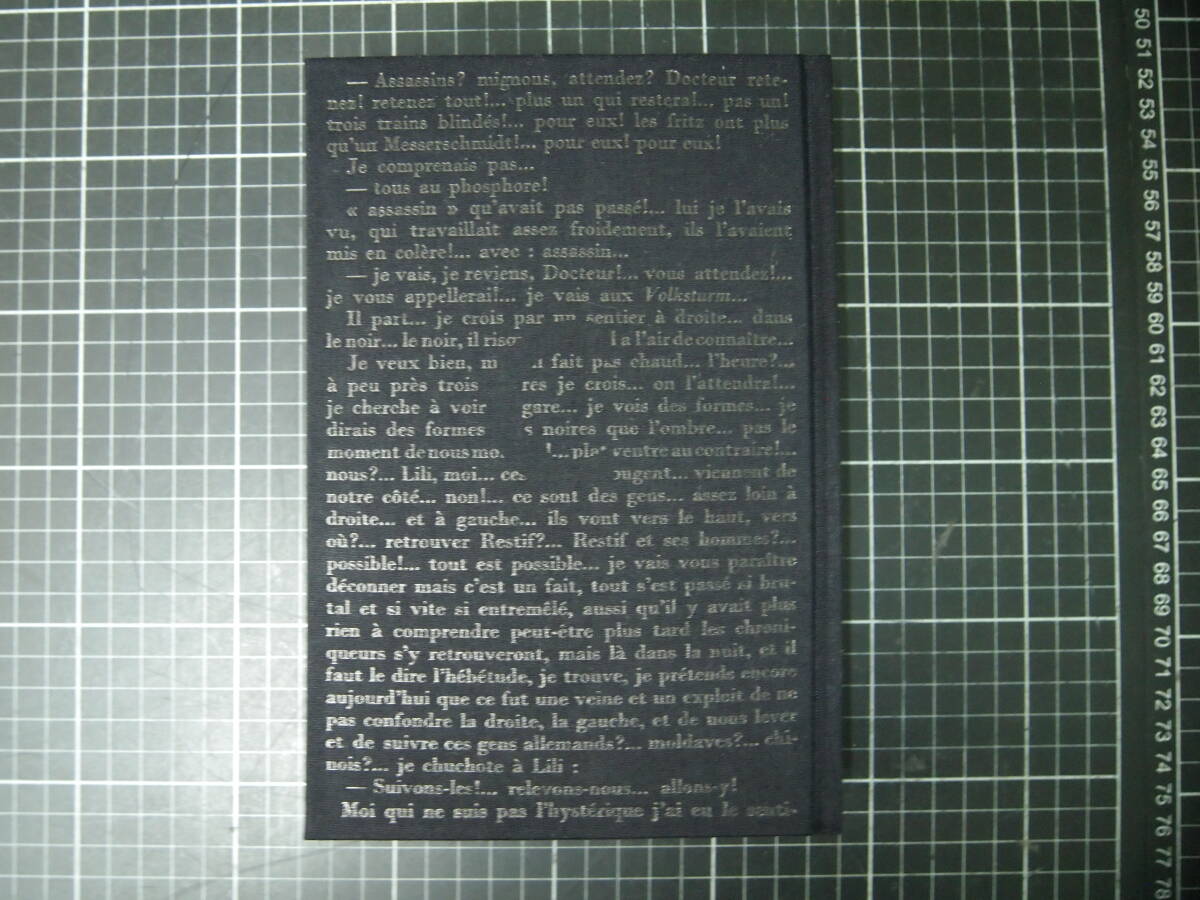 — Assassins? mignons, attendez? Docteur rete-
nez! retenez tout!... plus un qui restera!... pas un!
trois trains blindés!... pour eux! les fritz ont plus
qu'un Messerschmidt!... pour eux! pour eux!
Je comprenais pas...
— tous au phosphore!
« assassin » qu'avait pas passé!... lui je l'avais
vu, qui travaillait assez froidement, ils l'avaient
mis en colère!... avec : assassin...
— je vais, je reviens, Docteur!... vous attendez!...
je vous appellerai!... je vais aux Volksturm...
Il part... je crois par un sentier à droite... dans
le noir... le noir, il a l'air de connaître...
Je veux bien, fait pas chaud... l'heure?...
à peu près trois res je crois... on l'attendra!...
je cherche à voir gare... je vois des formes... je
dirais des formes s noires que l'ombre... pas le
moment de nous mo !... plat ventre au contraire!...
nous?... Lili, moi... ces ougent... viennent de
notre côté... non!... ce sont des gens... assez loin à
droite... et à gauche... ils vont vers le haut, vers
où?... retrouver Restif?... Restif et ses hommes?...
possible!... tout est possible... je vais vous paraître
déconner mais c'est un fait, tout s'est passé si bru-
tal et si vite si entremêlé, aussi qu'il y avait plus
rien à comprendre peut-être plus tard les chroni-
queurs s'y retrouveront, mais là dans la nuit, et il
faut le dire l'hébétude, je trouve, je prétends encore
aujourd'hui que ce fut une veine et un exploit de ne
pas confondre la droite, la gauche, et de nous lever
et de suivre ces gens allemands?... moldaves?... chi-
nois?... je chuchote à Lili :
— Suivons-les!... relevons-nous... allons-y!
Moi qui ne suis pas l'hystérique j'ai eu le senti-
50 51 52 53 54 55 56 57 58 59 60 61 62 63 64 65 66 67 68 69 70 71 72 73 74 75 76 77 78